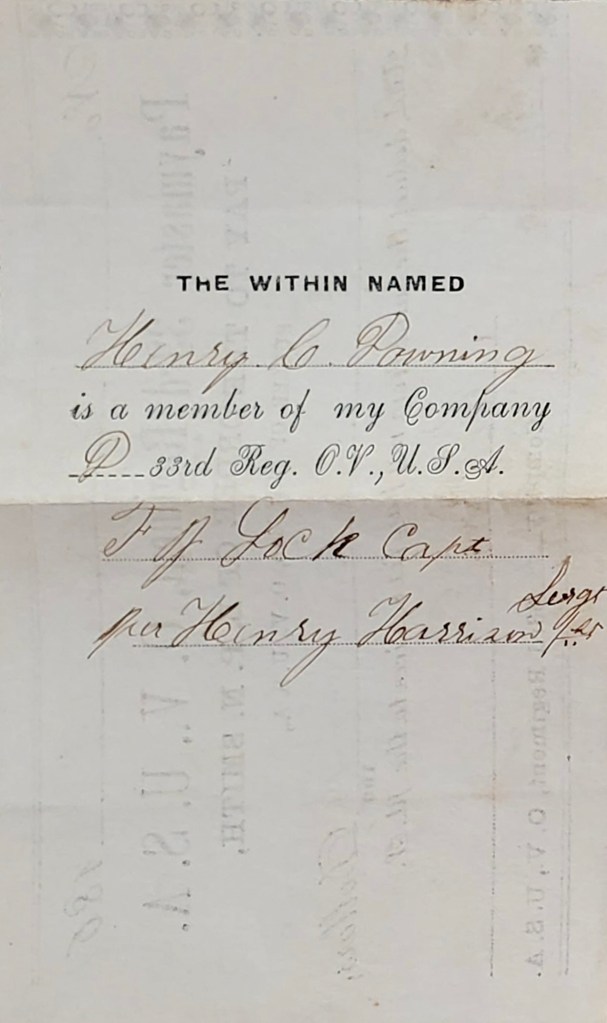 THE WITHIN NAMED
Henry C. Downing
is a member of my Company
D 33rd Reg. O.V., U.S.A.
F J Lock Capt
per Henry Harrison Sergt